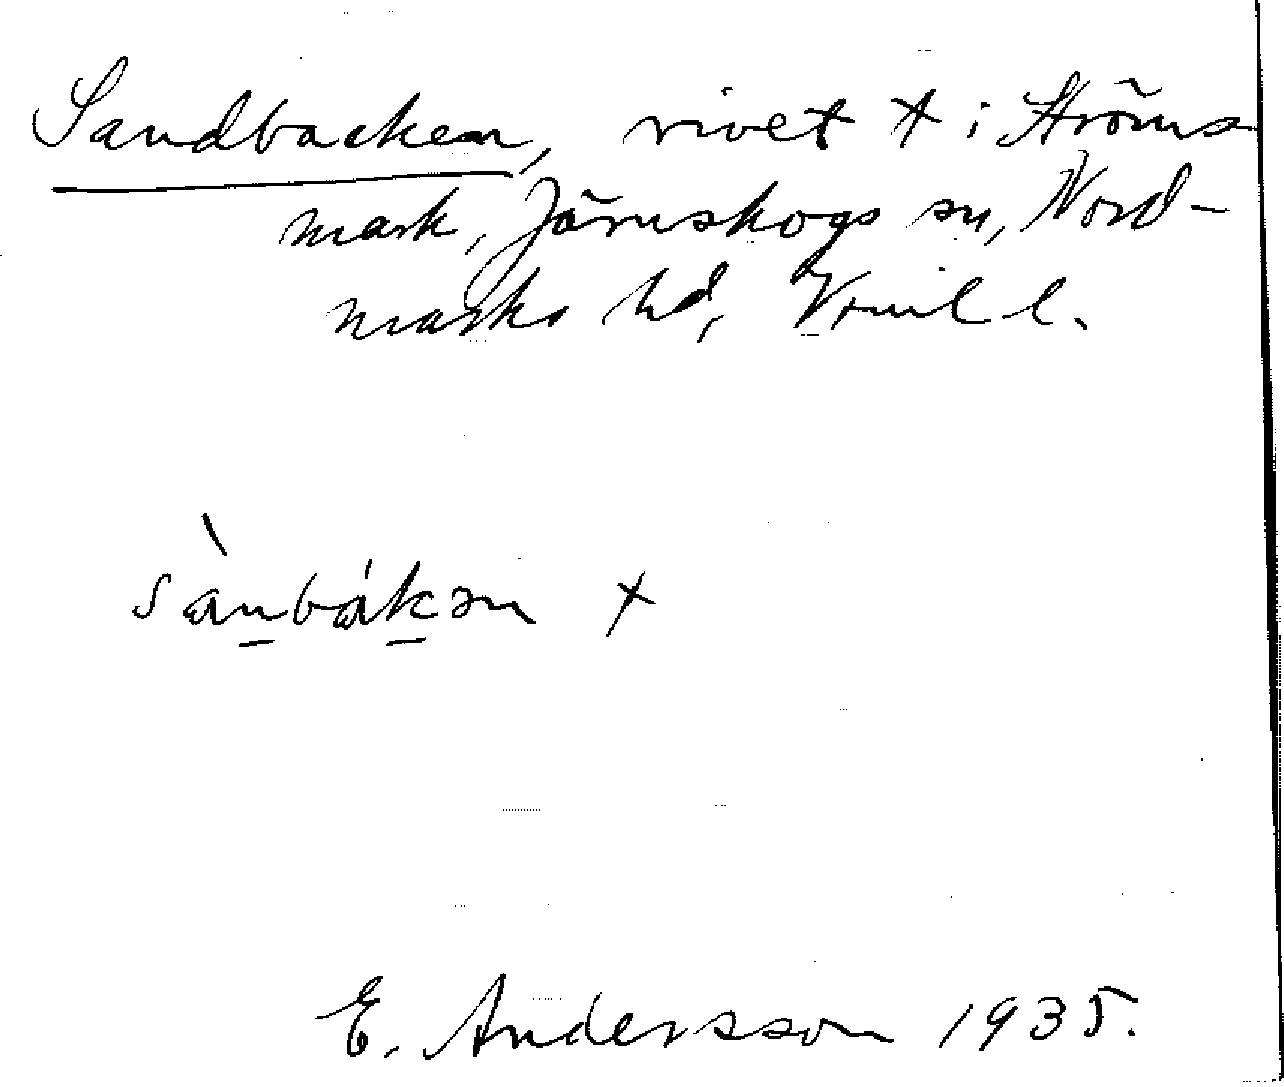 Sandbacken, rivet † i Ströms-
mark, Järnskogs sn, Nord-
marks hd, Vrml l.
sànbákən †
E. Andersson 1935.